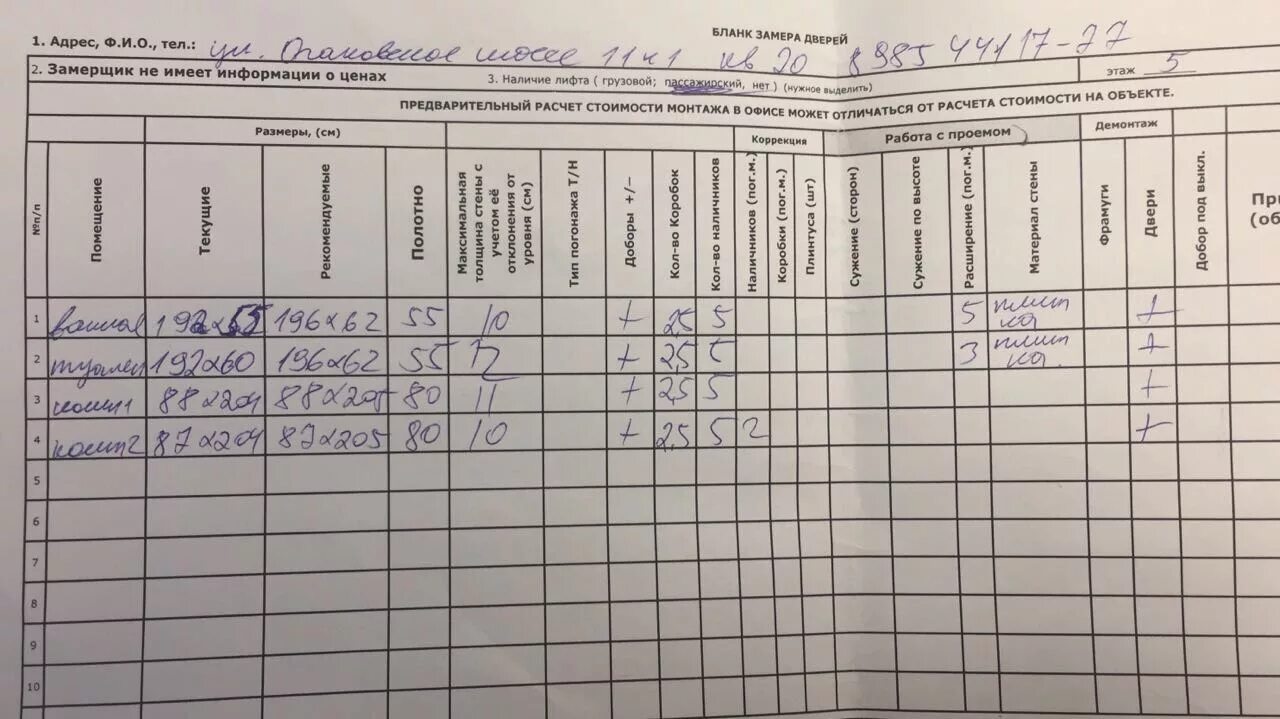 БЛАНК ЗАМЕРА ДВЕРЕЙ
1. Адрес, Ф.И.О., тел.: ул. шоссе 11к1 кв 20 8985 441 17-77
2. Замерщик не имеет информации о ценах 3. Наличие лифта ( грузовой; пассажирский, нет ) (нужное выделить) этаж 5
ПРЕДВАРИТЕЛЬНЫЙ РАСЧЕТ СТОИМОСТИ МОНТАЖА В ОФИСЕ МОЖЕТ ОТЛИЧАТЬСЯ ОТ РАСЧЕТА СТОИМОСТИ НА ОБЪЕКТЕ.
Размеры, (см) Коррекция Работа с проемом Демонтаж
№п/п
Помещение
Текущие
Рекомендуемые
Полотно
Максимальная толщина стены с учетом её отклонения от уровня (см)
Тип погонажа Т/Н
Доборы +/−
Кол-во Коробок
Кол-во наличников
Наличников (пог.м.)
Коробки (пог.м.)
Плинтуса (шт)
Сужение (сторон)
Сужение по высоте
Расширение (пог.м.)
Материал стены
Фрамуги
Двери
Добор под выкл.
1 ванная 192х55 196х62 55 10 + 2,5 5 5 плитка +
2 туалет 192х60 196х62 55 12 + 2,5 5 3 плитка +
3 комн1 88х204 88х205 80 11 + 2,5 5 +
4 комн2 87х204 87х205 80 10 + 2,5 5 2 +
5
6
7
8
9
10